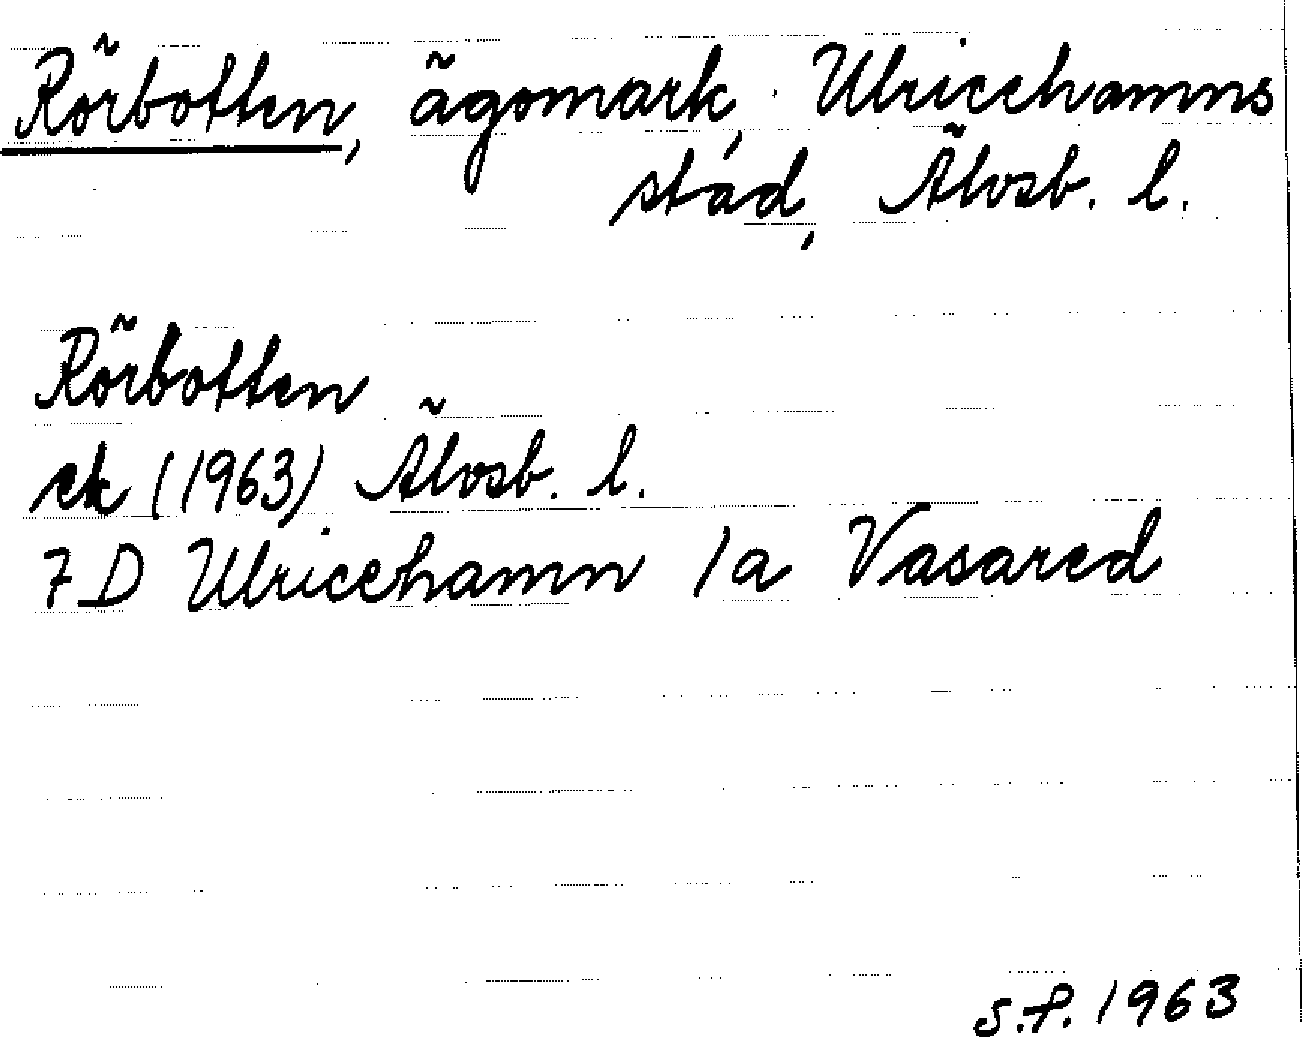 Rörbotten, ägomark, Ulricehamns
stad, Älvsb. l.
Rörbotten
ek (1963) Älvsb. l.
7 D Ulricehamn 1a Vasared
S.F. 1963